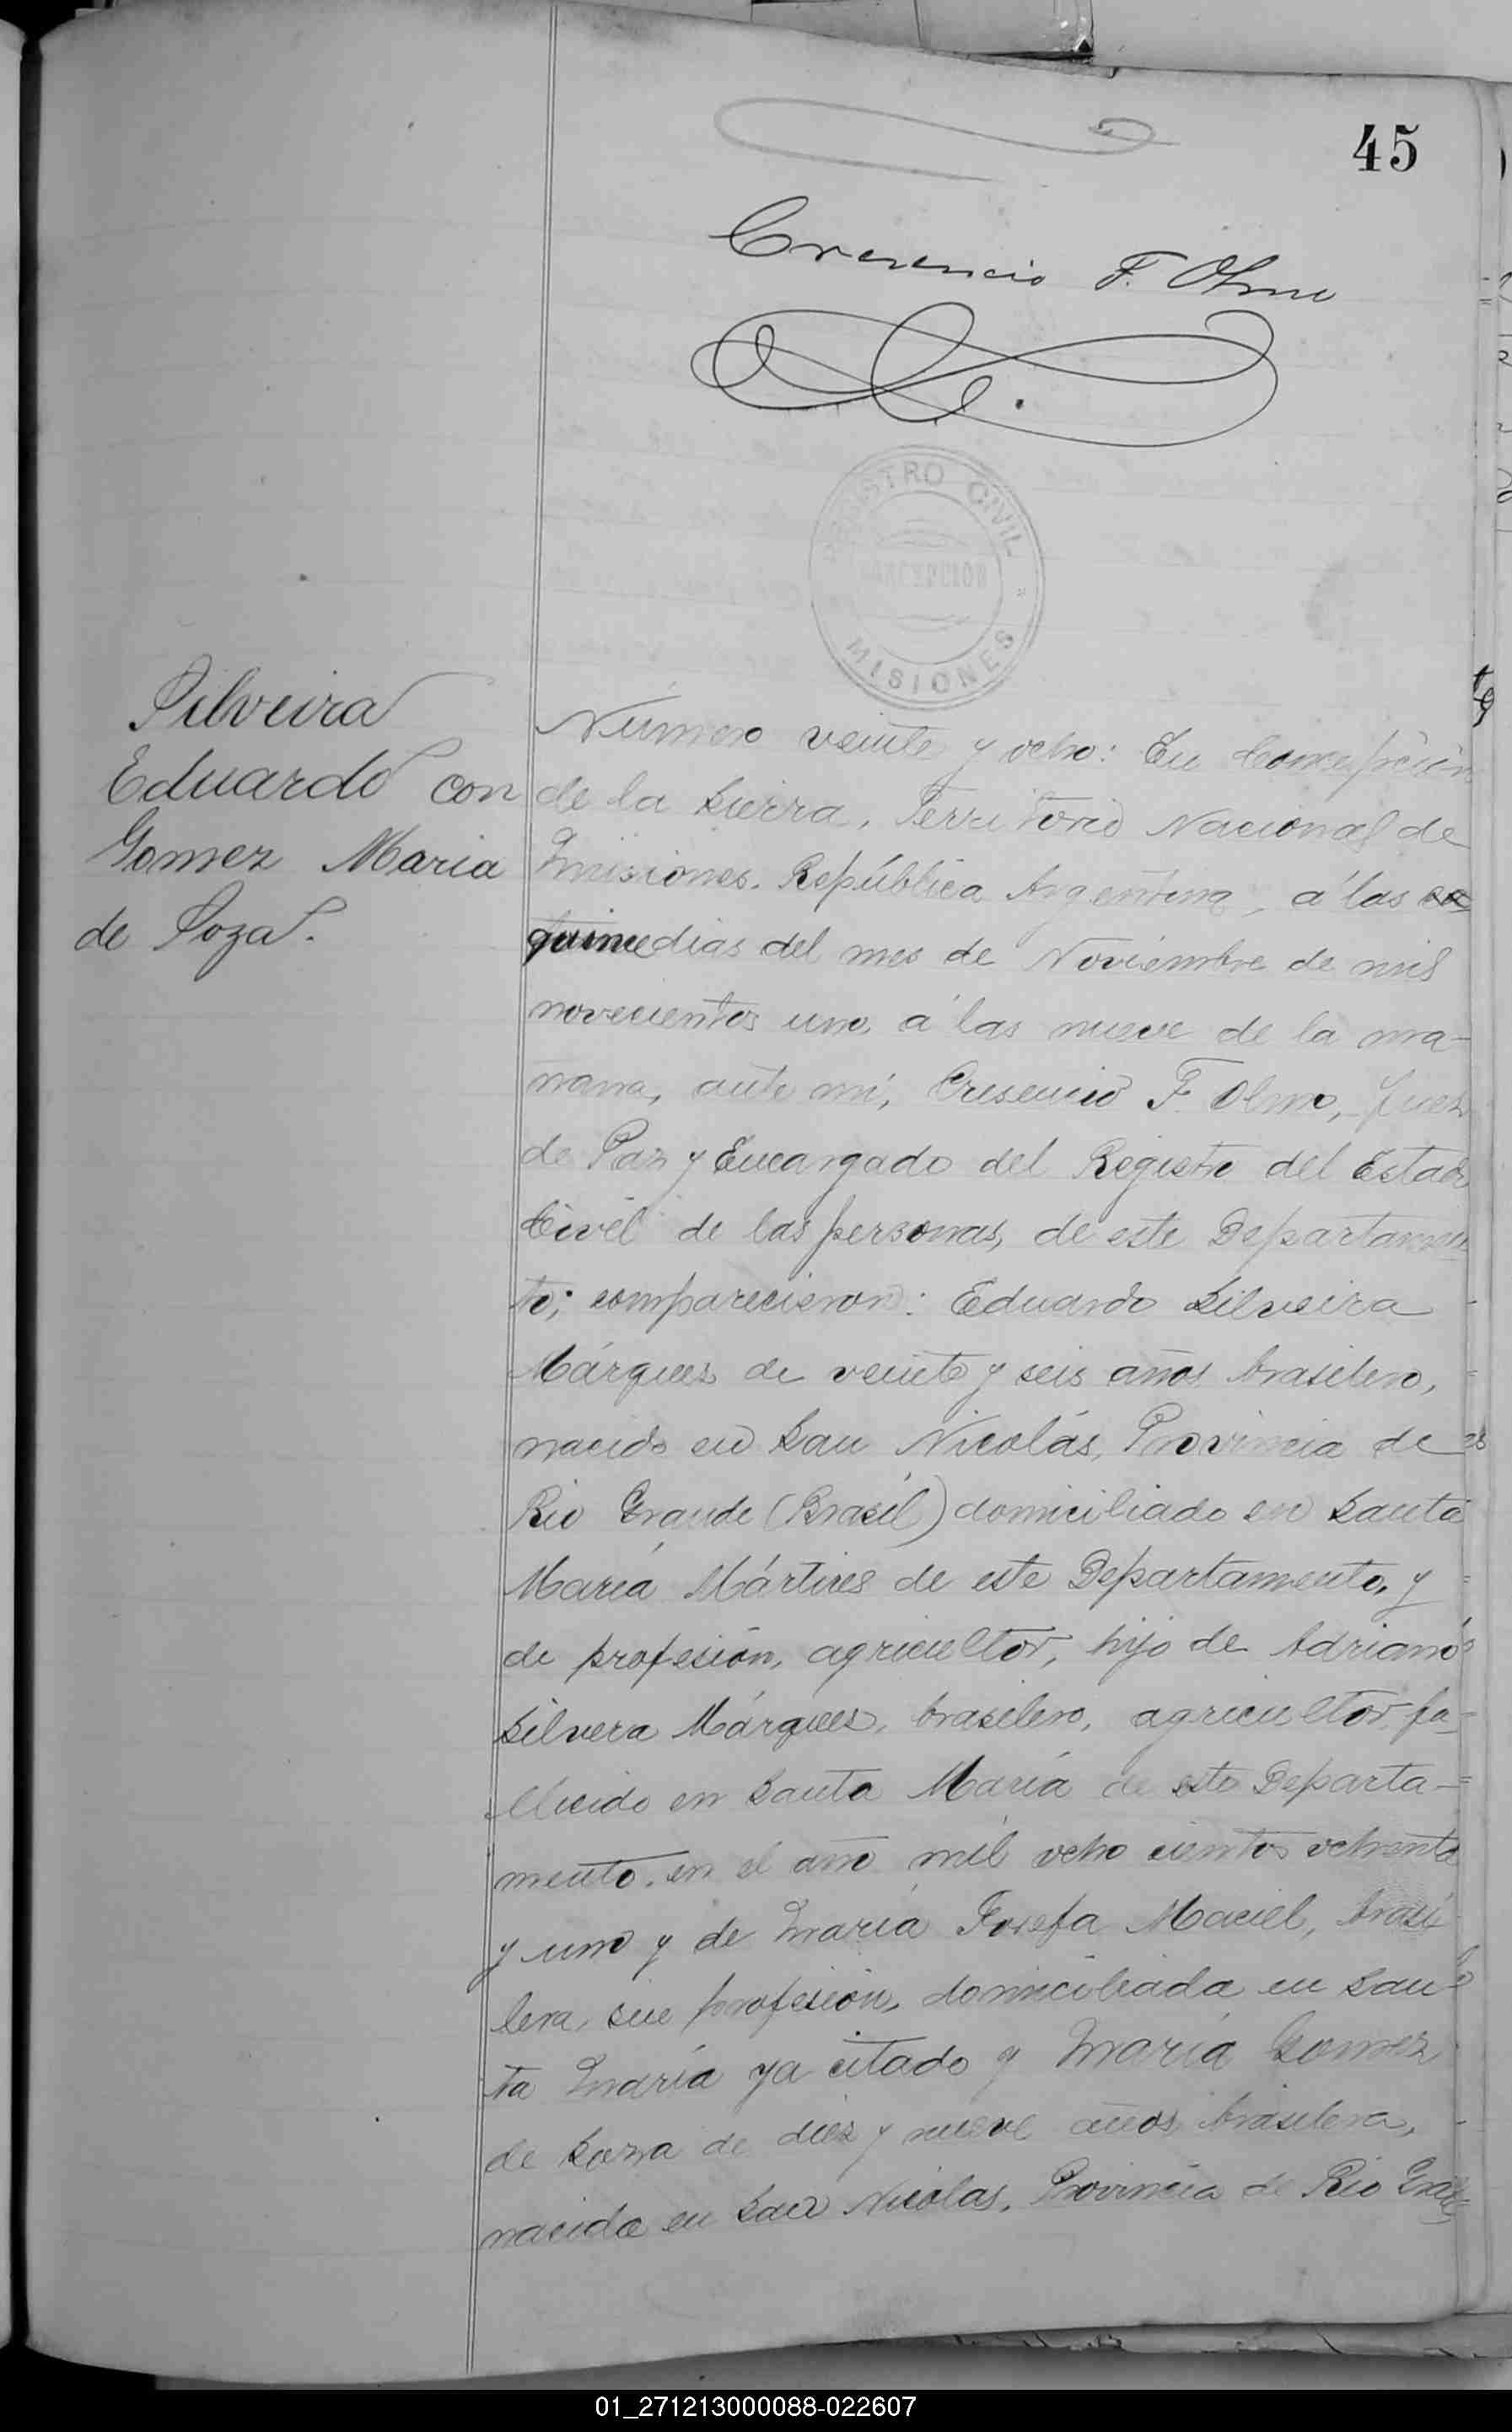 45
Cresencio F. Olmo
REGISTRO CIVIL
CONCEPCION
MISIONES
Silveira
Eduardo con
Gomez Maria
de Soza.
Número veinte y ocho: En Concepción
de la Sierra, Territorio Nacional de
Misiones. República Argentina, á las
quince dias del mes de Noviembre de mil
novecientos uno, á las nueve de la ma-
ñana, ante mi, Cresencio F. Olmo, Juez
de Paz y Encargado del Registro del Estado
Civil de las personas, de este Departamen
to; comparecieron: Eduardo Silveira
Márques de veinte y seis años brasilero,
nacido en San Nicolás, Provincia de
Rio Grande (Brasil) domiciliado en Santa
María Mártires de este Departamento, y
de profesión, agricultor, hijo de Adriano
Silvera Márques, brasilero, agricultor fa-
llecido en Santa María de este Departa-
mento. en el año mil ocho cientos ochenta
y uno y de María Josefa Maciel, brasi
lera, sin profesión, domiciliada en San
ta María ya citado y María Gomez
de Soza de diez y nueve años brasilera,
nacida en San Nicolas, Provincia de Rio Grande
01_271213000088-022607